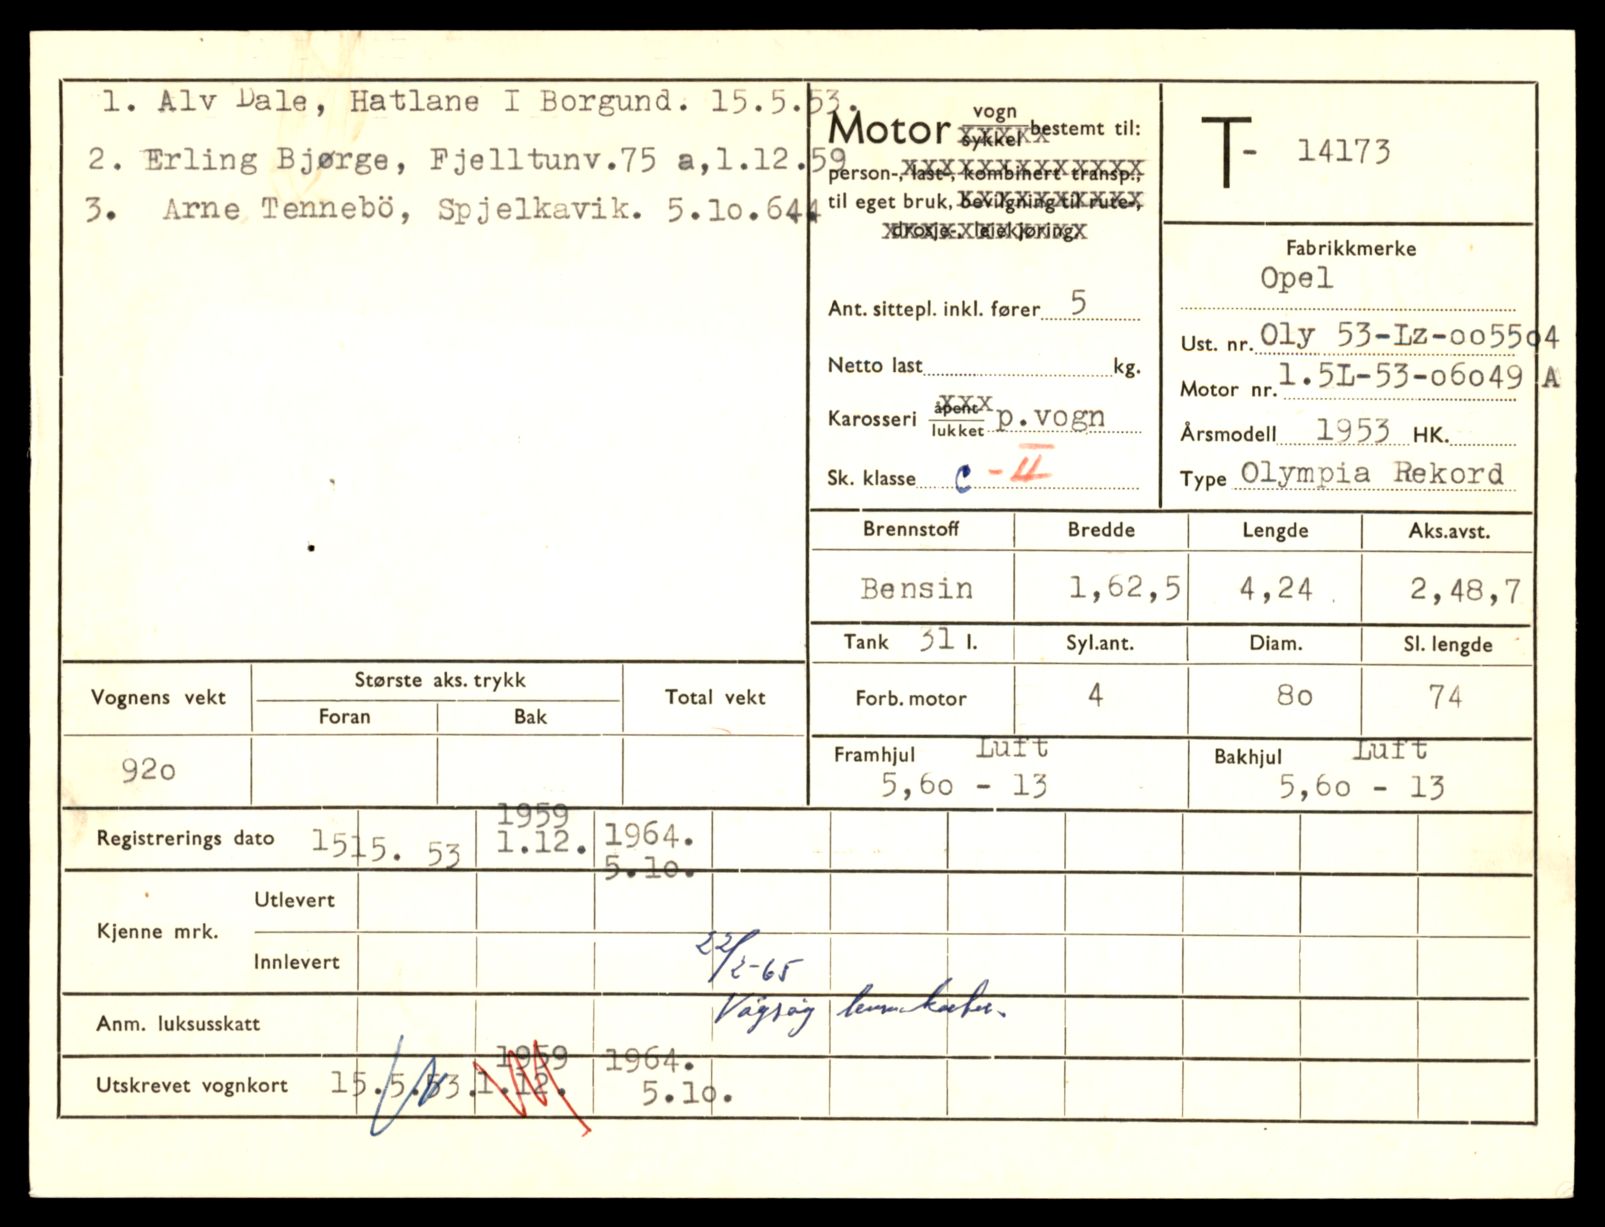 1. Alv Dale, Hatlane I Borgund. 15.5.53.
2. Erling Bjørge, Fjelltunv.75 a,1.12.59
3. Arne Tennebö, Spjelkavik. 5.10.644
Motor vogn
sykkel bestemt til:
person-, last-, kombinert transp.,
til eget bruk, bevilgning til rute-,
drosje-, leiekjøring
Ant. sittepl. inkl. fører 5
Netto last kg.
Karosseri åpent
lukket p.vogn
Sk. klasse C - II
T- 14173
Fabrikkmerke
Opel
Ust. nr. Oly 53-Lz-oo55o4
Motor nr. 1.5L-53-o6o49 A
Årsmodell 1953 HK.
Type Olympia Rekord
Brennstoff Bredde Lengde Aks.avst.
Bensin 1,62,5 4,24 2,48,7
Tank 31 l. Syl.ant. Diam. Sl. lengde
Forb. motor 4 8o 74
Framhjul Luft Bakhjul Luft
5,6o - 13 5,6o - 13
Vognens vekt Største aks. trykk Total vekt
Foran Bak
92o
Registrerings dato 1515. 53 1959 1.12. 1964. 5.1o.
Kjenne mrk. Utlevert
Innlevert 22/2-65
Vågsøy
Anm. luksusskatt
Utskrevet vognkort 15.5.53. 1959 1.12. 1964. 5.1o.